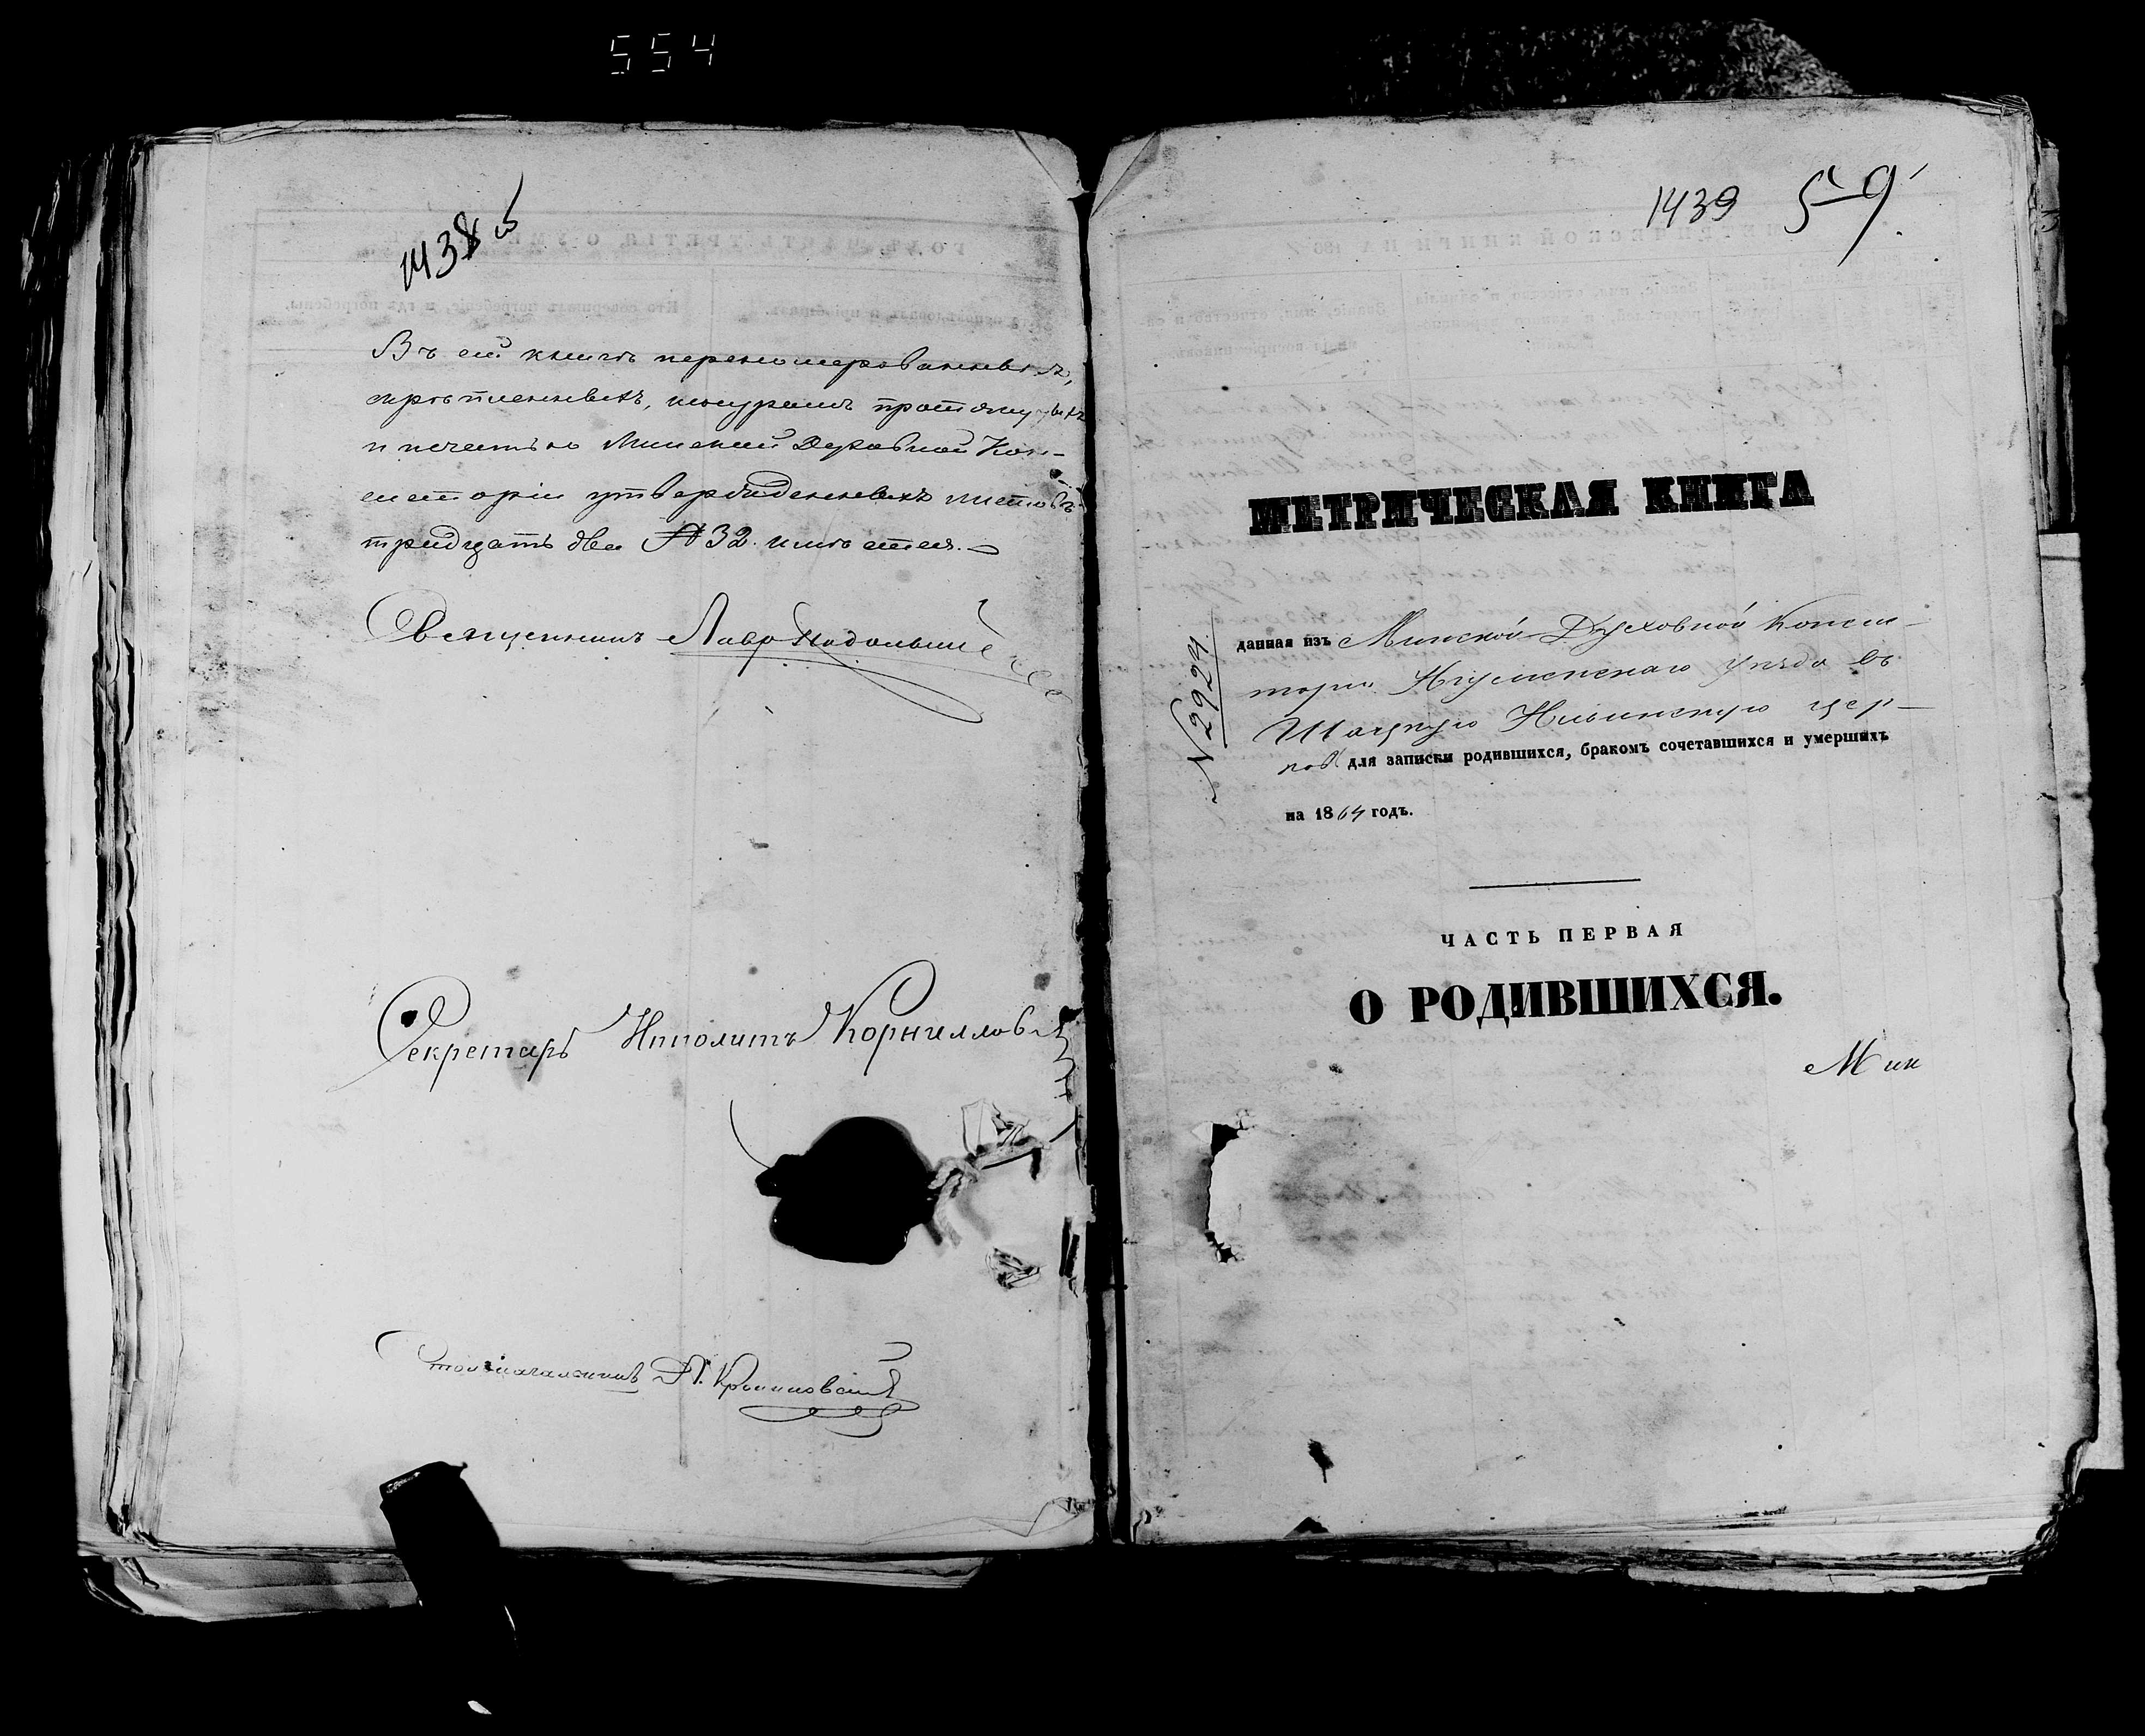 554
1438 об
Въ сей книгѣ перенумерованныхъ,
скрѣпленныхъ, шнуромъ протянутыхъ
и печатью Минской Духовной Кон-
систоріи утвержденныхъ листовъ
тридцать два № 32 имѣется.
Священникъ Лавр
Секретарь Ипполитъ Корниллов
Столоначальникъ
1439 59
МЕТРИЧЕСКАЯ КНИГА
№ 2924
данная изъ Минской Духовной Консис-
торіи Игуменскаго уѣзда въ
Шацкую Ильинскую цер-
ковь для записки родившихся, бракомъ сочетавшихся и умершихъ
на 1864 годъ.
ЧАСТЬ ПЕРВАЯ
О РОДИВШИХСЯ.
Мин